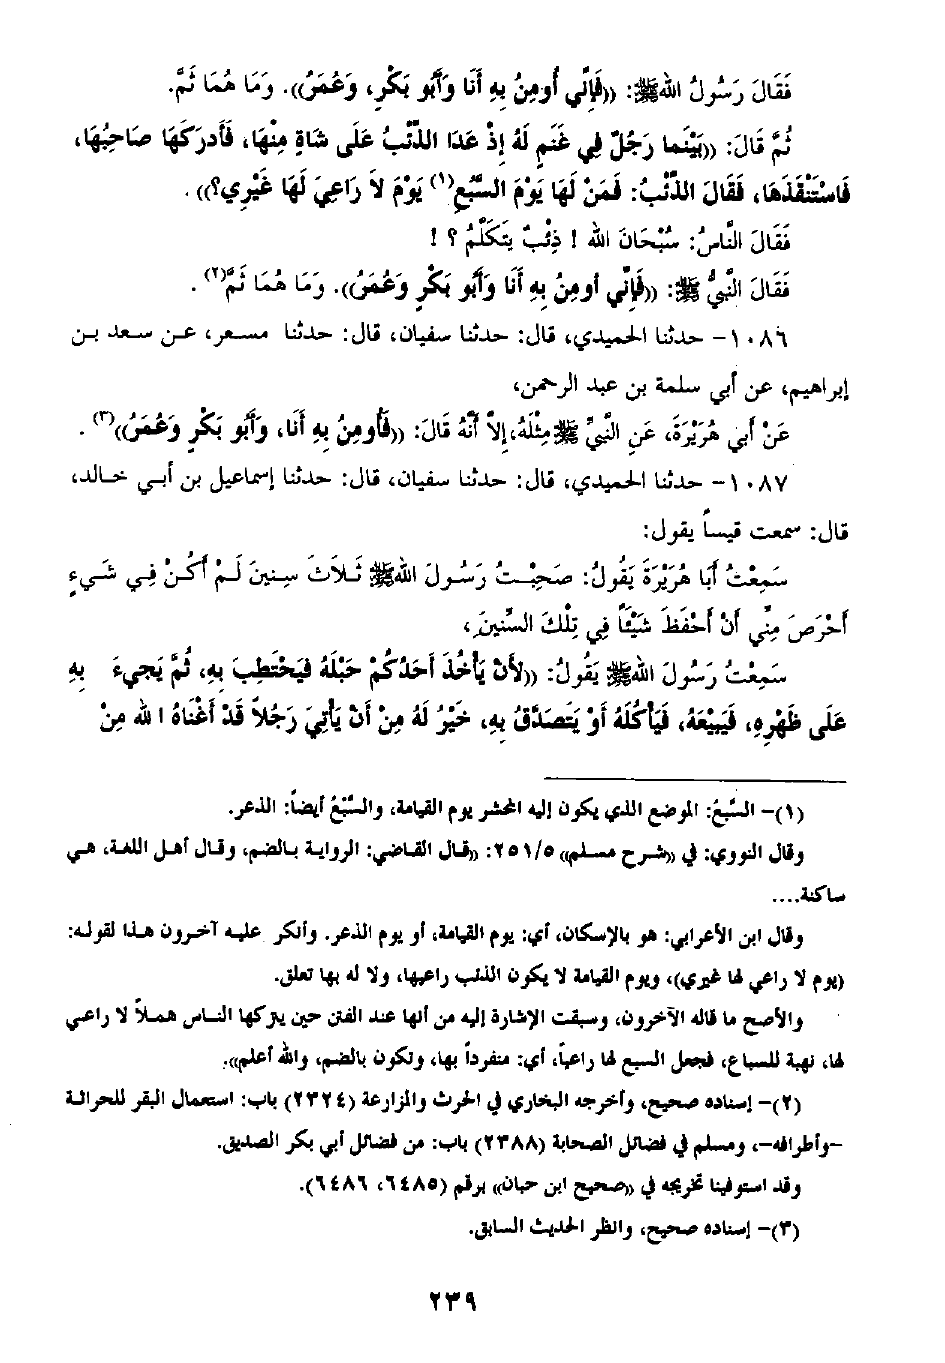 فَقَالَ رَسُولُ اللهِ ﷺ: ((فَإِنِّي أُومِنُ بِهِ أَنَا وَأَبُو بَكْرٍ، وَعُمَرُ)). وَمَا هُمَا ثَمَّ.
ثُمَّ قَالَ: ((بَيْنَما رَجُلٌ فِي غَنَمٍ لَهُ إِذْ عَدَا الذِّئْبُ عَلَى شَاةٍ مِنْهَا، فَأَدرَكَهَا صَاحِبُهَا،
فَاسْتَنْقَذَهَا، فَقَالَ الذِّئْبُ: فَمَنْ لَهَا يَوْمَ السَّبُعِ(١) يَوْمَ لاَ رَاعِيَ لَهَا غَيْرِي؟)).
فَقَالَ النَّاسُ: سُبْحَانَ الله ! ذِئْبٌ يَتَكَلَّمُ ؟ !
فَقَالَ النَّبِيُّ ﷺ: ((فَإِنِّي أومِنُ بِهِ أَنَا وَأَبُو بَكْرٍ وَعُمَرُ)). وَمَا هُمَا ثَمَّ(٢) .
١٠٨٦- حدثنا الحميدي، قال: حدثنا سفيان، قال: حدثنا مسعر، عن سعد بن
إبراهيم، عن أبي سلمة بن عبد الرحمن،
عَنْ أَبي هُرَيْرَةَ، عَنِ النَّبِيِّ ﷺ مِثْلَهُ، إِلاَّ أَنَّهُ قَالَ: ((فَأُومِنُ بِهِ أَنَا، وَأَبُو بَكْرٍ وَعُمَرُ))(٣) .
١٠٨٧- حدثنا الحميدي، قال: حدثنا سفيان، قال: حدثنا إسماعيل بن أبي خالد،
قال: سمعت قيساً يقول:
سَمِعْتُ أَبَا هُرَيْرَةَ يَقُولُ: صَحِبْتُ رَسُولَ اللهِ ﷺ ثَلاَثَ سِنِينَ لَمْ أَكُنْ فِي شَيءٍ
أَحْرَصَ مِنِّي أَنْ أَحْفَظَ شَيْئاً فِي تِلْكَ السِّنِينَ،
سَمِعْتُ رَسُولَ اللهِ ﷺ يَقُولُ: ((لأَنْ يَأْخُذَ أَحَدُكُمْ حَبْلَهُ فَيَحْتَطِبَ بِهِ، ثُمَّ يَجِيءَ بِهِ
عَلَى ظَهْرِهِ، فَيَبِيْعَهُ، فَيَأْكُلَهُ أَوْ يَتَصَدَّقُ بِهِ، خَيْرٌ لَهُ مِنْ أَنْ يَأْتِيَ رَجُلاً قَدْ أَغْنَاهُ الله مِنْ
(١)- السَّبُعُ: الموضع الذي يكون إليه المحشر يوم القيامة، والسَّبْعُ أيضاً: الذعر.
وقال النووي: في ((شرح مسلم)) ٢٥١/٥: ((قال القاضي: الرواية بالضم، وقال أهل اللغة، هي
ساكنة....
وقال ابن الأعرابي: هو بالإسكان، أي: يوم القيامة، أو يوم الذعر. وأنكر عليه آخرون هذا لقوله:
(يوم لا راعي لها غيري)، ويوم القيامة لا يكون الذئب راعيها، ولا له بها تعلق.
والأصح ما قاله الآخرون، وسبقت الإشارة إليه من أنها عند الفتن حين يتركها الناس هملاً لا راعي
لها، نهبة للسباع، فجعل السبع لها راعياً، أي: منفرداً بها، وتكون بالضم، والله أعلم)).
(٢)- إسناده صحيح، وأخرجه البخاري في الحرث والمزارعة (٢٣٢٤) باب: استعمال البقر للحراثة
-وأطرافه-، ومسلم في فضائل الصحابة (٢٣٨٨) باب: من فضائل أبي بكر الصديق.
وقد استوفينا تخريجه في ((صحيح ابن حبان)) برقم (٦٤٨٥، ٦٤٨٦).
(٣)- إسناده صحيح، وانظر الحديث السابق.
٢٣٩